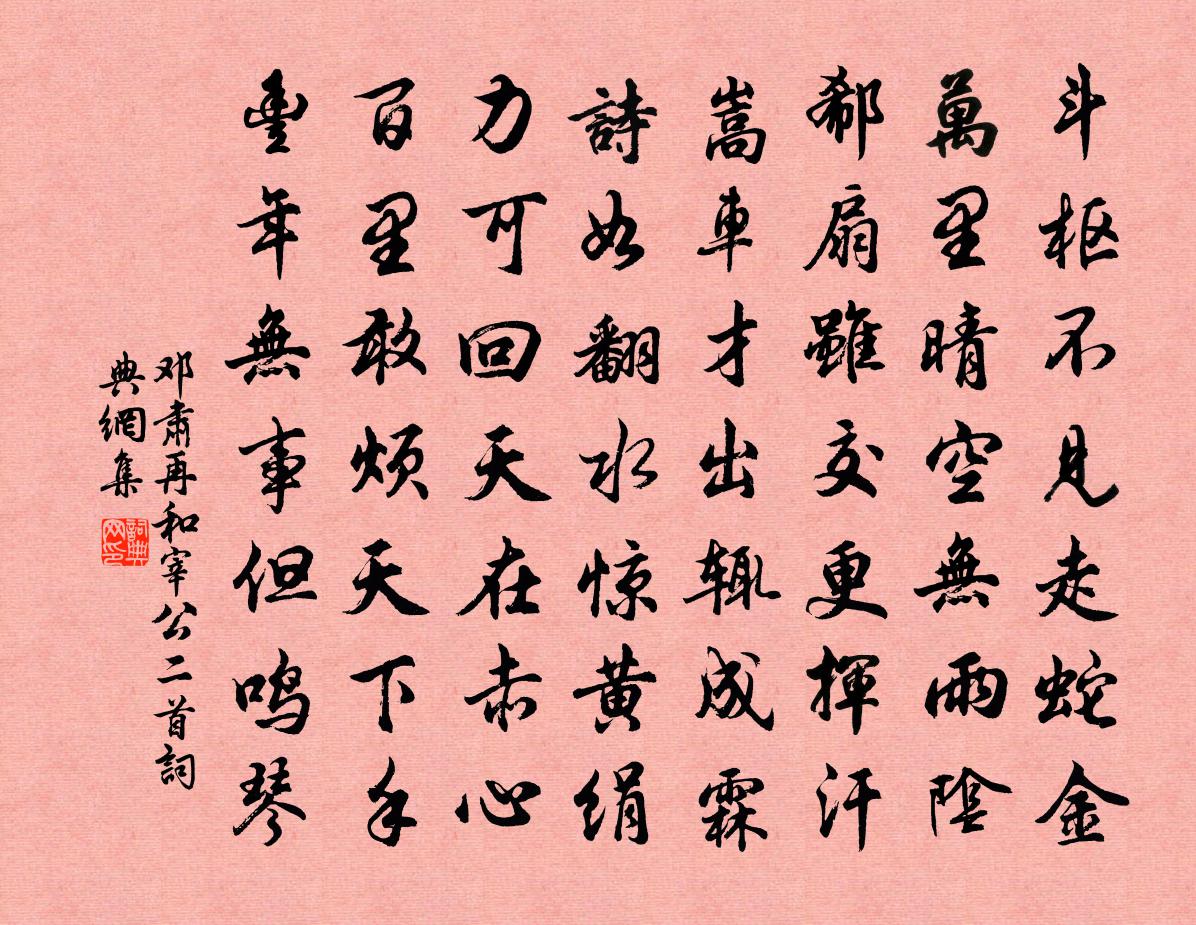 斗枢不见走蛇金
萬里晴空無雨陰
郗扇雖交更揮汗
嵩車才出辄成霖
詩如翻水惊黄绢
力可回天在赤心
百里敢烦天下手
豊年無事但鸣琴
邓肅再和宰公二首詞
典網集
詞典网印